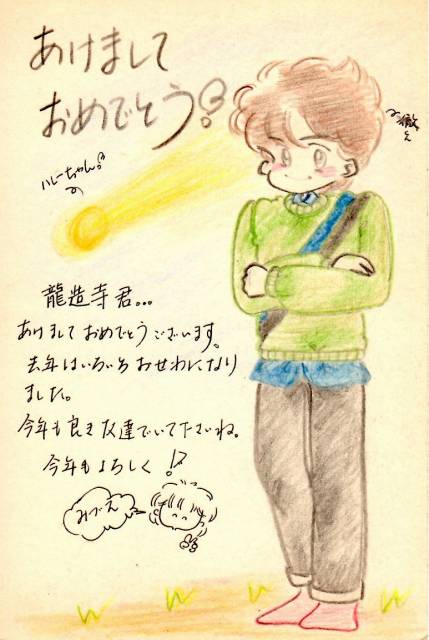 あけまして
おめでとう!
ハレーちゃん!
龍造寺君...
あけまして おめでとうございます。
去年はいろいろ おせわになり
ました。
今年も良き友達でいて下さいね。
今年もよろしく!?
みづえ